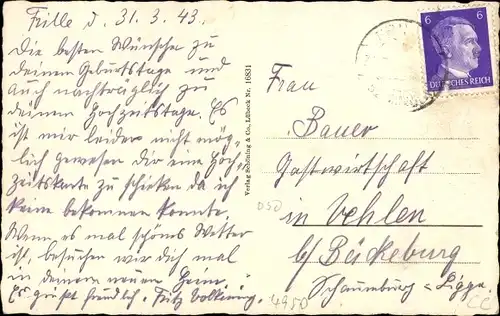 Frille d. 31. 3. 43.
Die besten Wünsche zu
deinem Geburtstage und
auch nachträglich zu
deinem Hochzeitstage. Es
ist mir leider nicht mög-
lich gewesen dir eine Hoch-
zeitskarte zu schicken da ich
keine bekommen konnte.
Wenn es mal schöns Wetter
ist, besuchen wir dich mal
in deinem neuen Heim.
Es grüßt freundlich Fritz
Verlag Schöning & Co., Lübeck Nr. 16831
6 6
DEUTSCHES REICH
Frau
Bauer
Gastwirtschaft
in Vehlen
b/ Bückeburg
Schaumburg - Lippe
4950